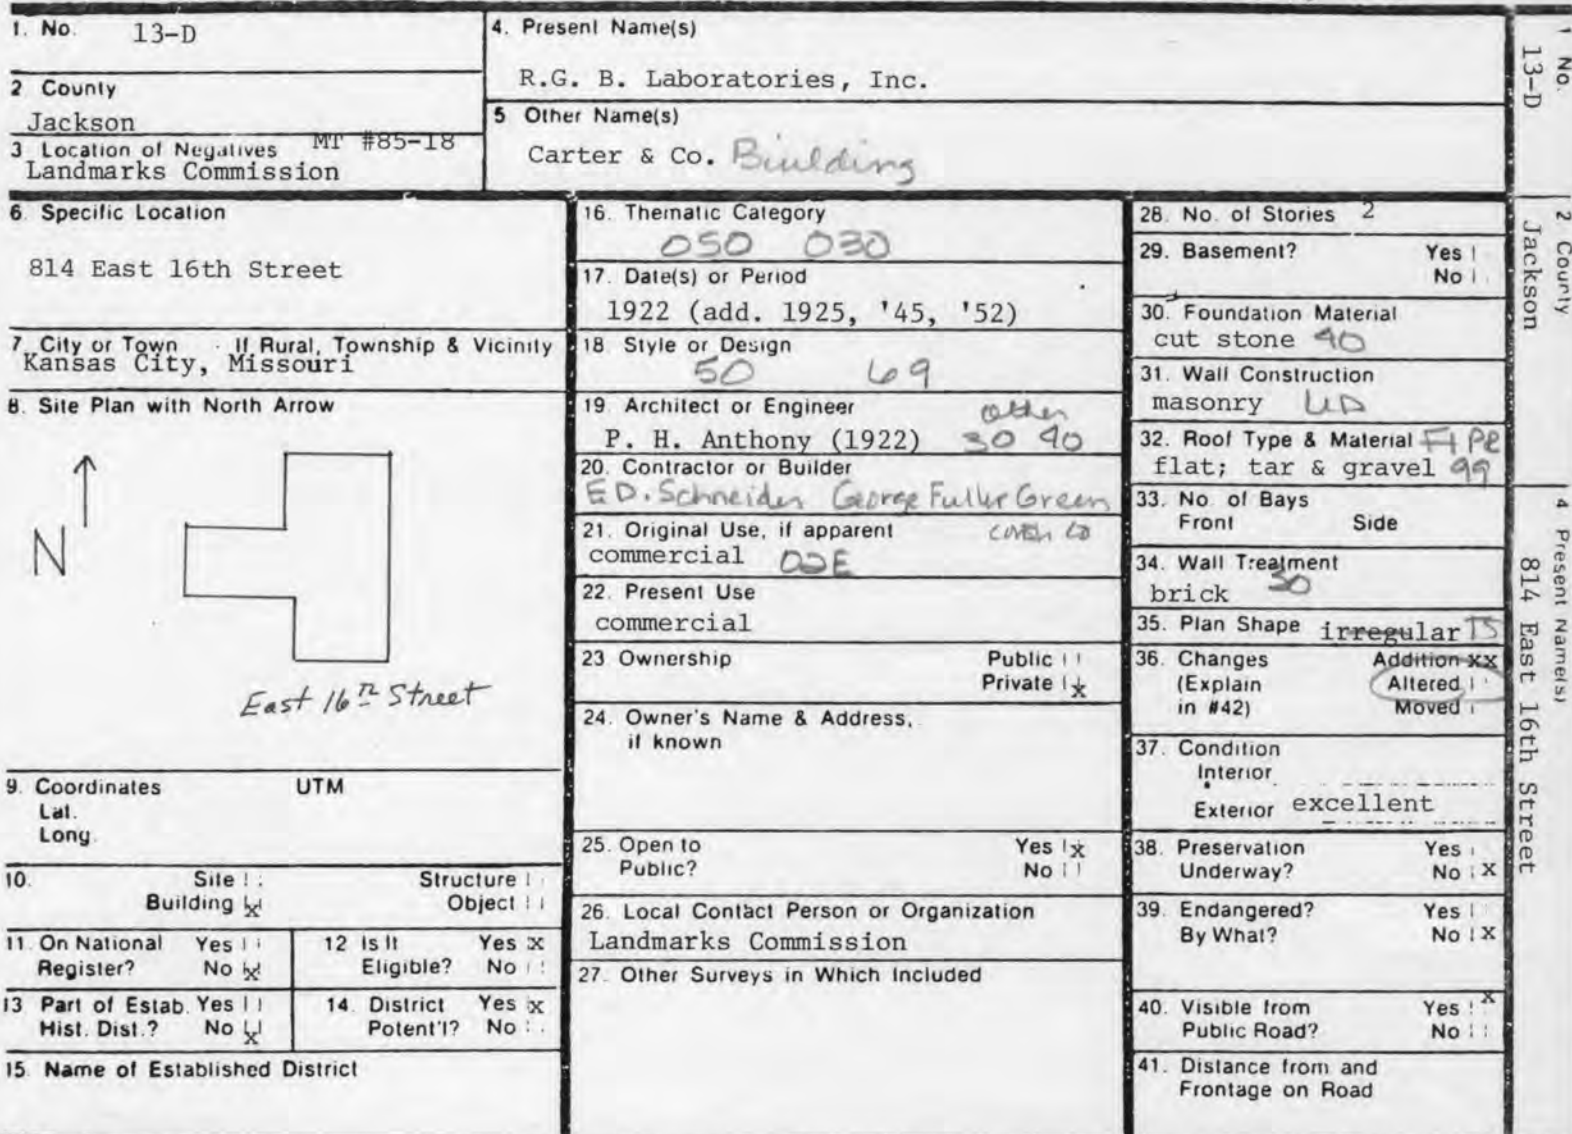 1. No. 13-D
2 County
Jackson
3 Location of Negatives MT #85-18
Landmarks Commission
4. Present Name(s)
R.G. B. Laboratories, Inc.
5 Other Name(s)
Carter & Co. Building
6. Specific Location
814 East 16th Street
7. City or Town If Rural, Township & Vicinity
Kansas City, Missouri
8. Site Plan with North Arrow
N
East 16th Street
9. Coordinates UTM
Lat.
Long.
10. Site Structure
Building x Object
11. On National Yes
Register? No x
12 Is It Yes x
Eligible? No
13 Part of Estab. Yes
Hist. Dist.? No x
14. District Yes x
Potent'l? No
15. Name of Established District
16. Thematic Category
050 030
17. Date(s) or Period
1922 (add. 1925, '45, '52)
18. Style or Design
50 69
19. Architect or Engineer other
P. H. Anthony (1922) 30 40
20. Contractor or Builder
E.D. Schneider George Fuller Green
21. Original Use, if apparent
commercial 02E
22. Present Use
commercial
23 Ownership Public
Private x
24. Owner's Name & Address,
if known
25. Open to Yes x
Public? No
26. Local Contact Person or Organization
Landmarks Commission
27. Other Surveys in Which Included
28. No. of Stories 2
29. Basement? Yes
No
30. Foundation Material
cut stone 40
31. Wall Construction
masonry UD
32. Roof Type & Material
flat; tar & gravel 99
33. No. of Bays
Front Side
34. Wall Treatment
brick 30
35. Plan Shape irregular TS
36. Changes Addition xx
(Explain Altered
in #42) Moved
37. Condition
Interior
Exterior excellent
38. Preservation Yes
Underway? No x
39. Endangered? Yes
By What? No x
40. Visible from Yes x
Public Road? No
41. Distance from and
Frontage on Road
1 No.
13-D
2 County
Jackson
4 Present Name(s)
814 East 16th Street